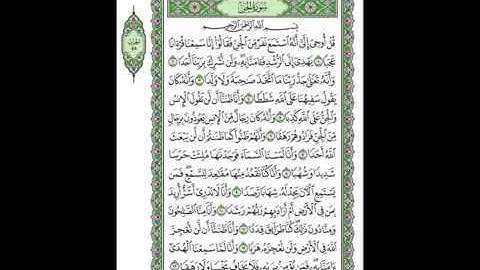 سُورَةُ الجِنِّ
بِسْمِ ٱللَّهِ ٱلرَّحْمَٰنِ ٱلرَّحِيمِ
قُلْ أُوحِيَ إِلَيَّ أَنَّهُ ٱسْتَمَعَ نَفَرٌ مِّنَ ٱلْجِنِّ فَقَالُوٓا۟ إِنَّا سَمِعْنَا قُرْءَانًا
عَجَبًا ١ يَهْدِىٓ إِلَى ٱلرُّشْدِ فَـَٔامَنَّا بِهِۦ وَلَن نُّشْرِكَ بِرَبِّنَآ أَحَدًا ٢
وَأَنَّهُۥ تَعَٰلَىٰ جَدُّ رَبِّنَا مَا ٱتَّخَذَ صَٰحِبَةً وَلَا وَلَدًا ٣ وَأَنَّهُۥ كَانَ
يَقُولُ سَفِيهُنَا عَلَى ٱللَّهِ شَطَطًا ٤ وَأَنَّا ظَنَنَّآ أَن لَّن تَقُولَ ٱلْإِنسُ
وَٱلْجِنُّ عَلَى ٱللَّهِ كَذِبًا ٥ وَأَنَّهُۥ كَانَ رِجَالٌ مِّنَ ٱلْإِنسِ يَعُوذُونَ بِرِجَالٍ
مِّنَ ٱلْجِنِّ فَزَادُوهُمْ رَهَقًا ٦ وَأَنَّهُمْ ظَنُّوا۟ كَمَا ظَنَنتُمْ أَن لَّن يَبْعَثَ
ٱللَّهُ أَحَدًا ٧ وَأَنَّا لَمَسْنَا ٱلسَّمَآءَ فَوَجَدْنَٰهَا مُلِئَتْ حَرَسًا
شَدِيدًا وَشُهُبًا ٨ وَأَنَّا كُنَّا نَقْعُدُ مِنْهَا مَقَٰعِدَ لِلسَّمْعِ فَمَن
يَسْتَمِعِ ٱلْءَانَ يَجِدْ لَهُۥ شِهَابًا رَّصَدًا ٩ وَأَنَّا لَا نَدْرِىٓ أَشَرٌّ أُرِيدَ
بِمَن فِى ٱلْأَرْضِ أَمْ أَرَادَ بِهِمْ رَبُّهُمْ رَشَدًا ١٠ وَأَنَّا مِنَّا ٱلصَّٰلِحُونَ
وَمِنَّا دُونَ ذَٰلِكَ كُنَّا طَرَآئِقَ قِدَدًا ١١ وَأَنَّا ظَنَنَّآ أَن لَّن نُّعْجِزَ
ٱللَّهَ فِى ٱلْأَرْضِ وَلَن نُّعْجِزَهُۥ هَرَبًا ١٢ وَأَنَّا لَمَّا سَمِعْنَا ٱلْهُدَىٰٓ
ءَامَنَّا بِهِۦ فَمَن يُؤْمِنۢ بِرَبِّهِۦ فَلَا يَخَافُ بَخْسًا وَلَا رَهَقًا ١٣